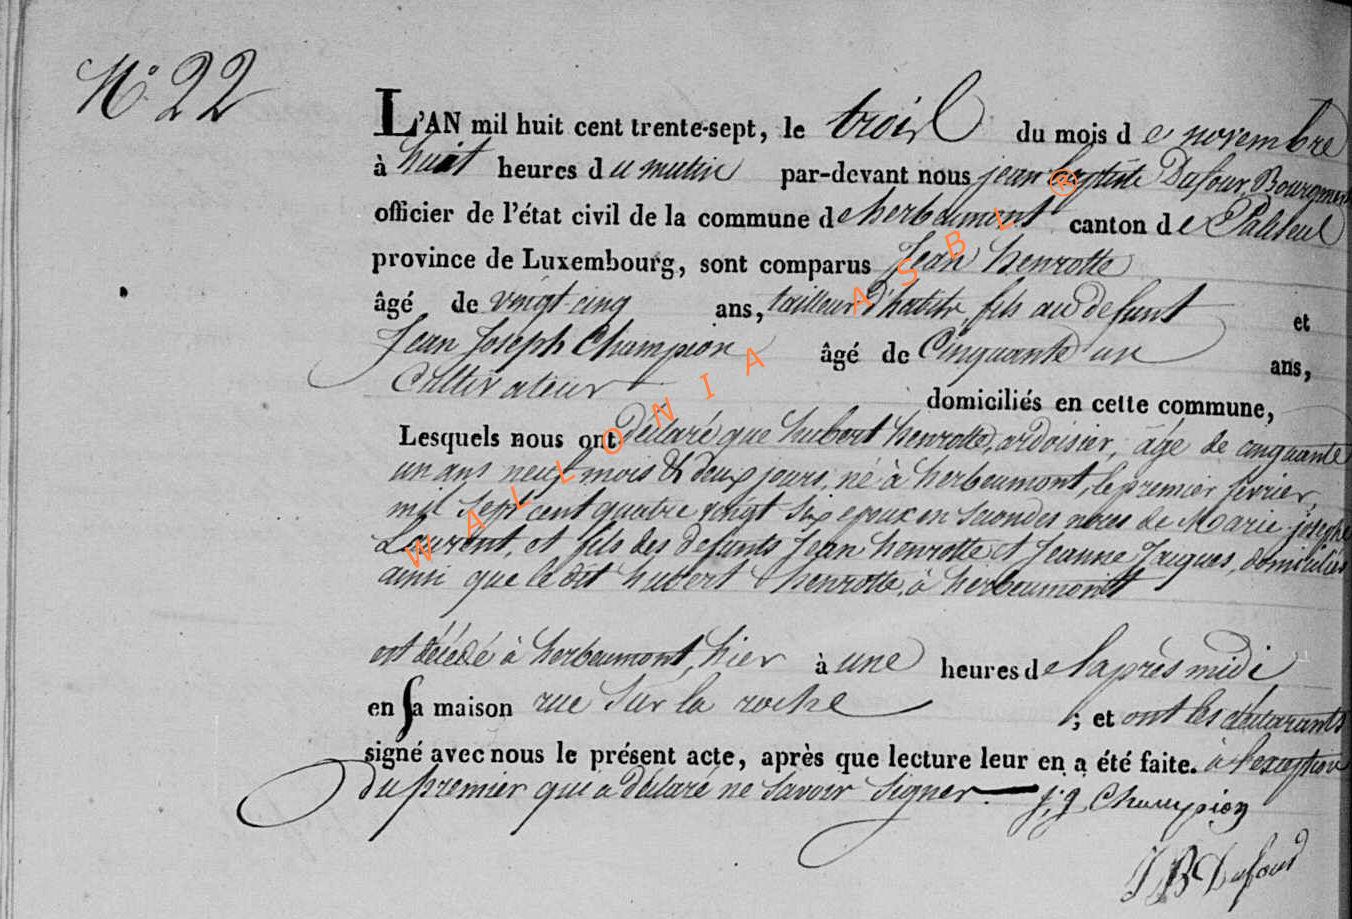 N.° 22
L'AN mil huit cent trente-sept, le trois du mois de novembre
à huit heures du matin par-devant nous jean baptiste Dufour Bourgmest
officier de l'état civil de la commune de herbeumont canton de Paliseul
province de Luxembourg, sont comparus Jean henrotte
âgé de vingt cinq ans, tailleur d'habits, fils au défunt et
Jean Joseph Champion âgé de Cinquante un ans,
Cultivateur domiciliés en cette commune,
Lesquels nous ont déclaré que hubert henrotte, ardoisier, âgé de cinquante
un ans neuf mois & deux jours, né à herbeumont, le premier février
mil sept cent quatre vingt six epoux en secondes noces de Marie josephe
Laurent, et fils des defunts Jean henrotte et Jeanne Jaques, domiciliés
ainsi que le dit hubert henrotte, à herbeumont
est décédé à herbeumont, hier à une heures de l'après midi
en sa maison rue sur la roche ; et ont les déclarants
signé avec nous le présent acte, après que lecture leur en a été faite. à l'exception
du premier qui a déclaré ne savoir signer. j: j Champion
JB Dufour
WALLONIA ASBL ®